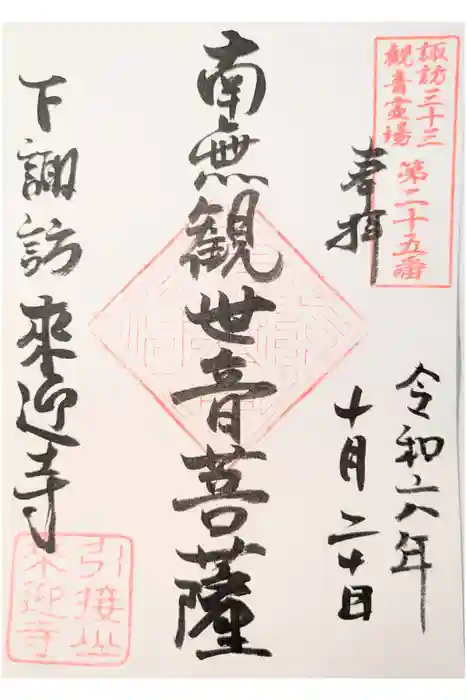 諏訪三十三
観音霊場
第二十五番
奉拝
令和六年
十月二十日
南無観世音菩薩
下諏訪來迎寺
引接山
来迎寺